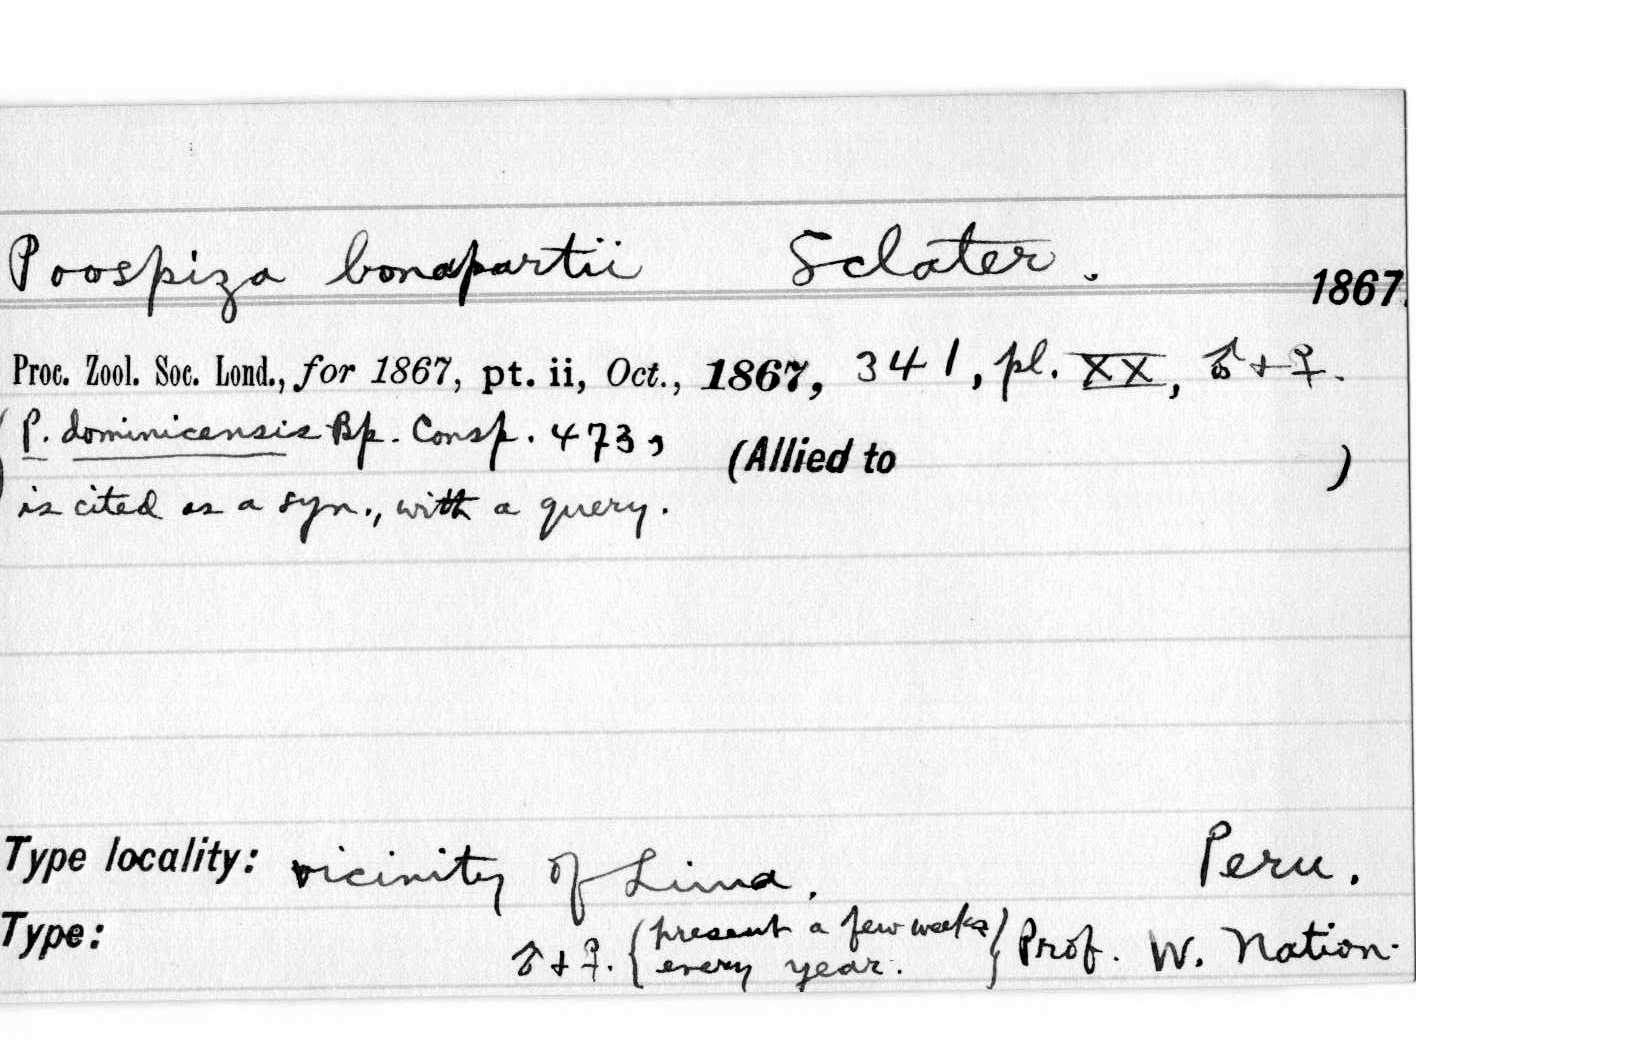 Poospiza bonapartii Sclater.
1867.
Proc. Zool. Soc. Lond., for 1867, pt. ii, Oct., 1867, 341, pl. XX, ♂ + ♀.
(P. dominicensis Bp. Consp. 473,
(Allied to )
is cited as a syn., with a query.
Type locality: vicinity of Lima. Peru.
Type: ♂ + ♀. {present a few weeks every year.} Prof. W. Nation.